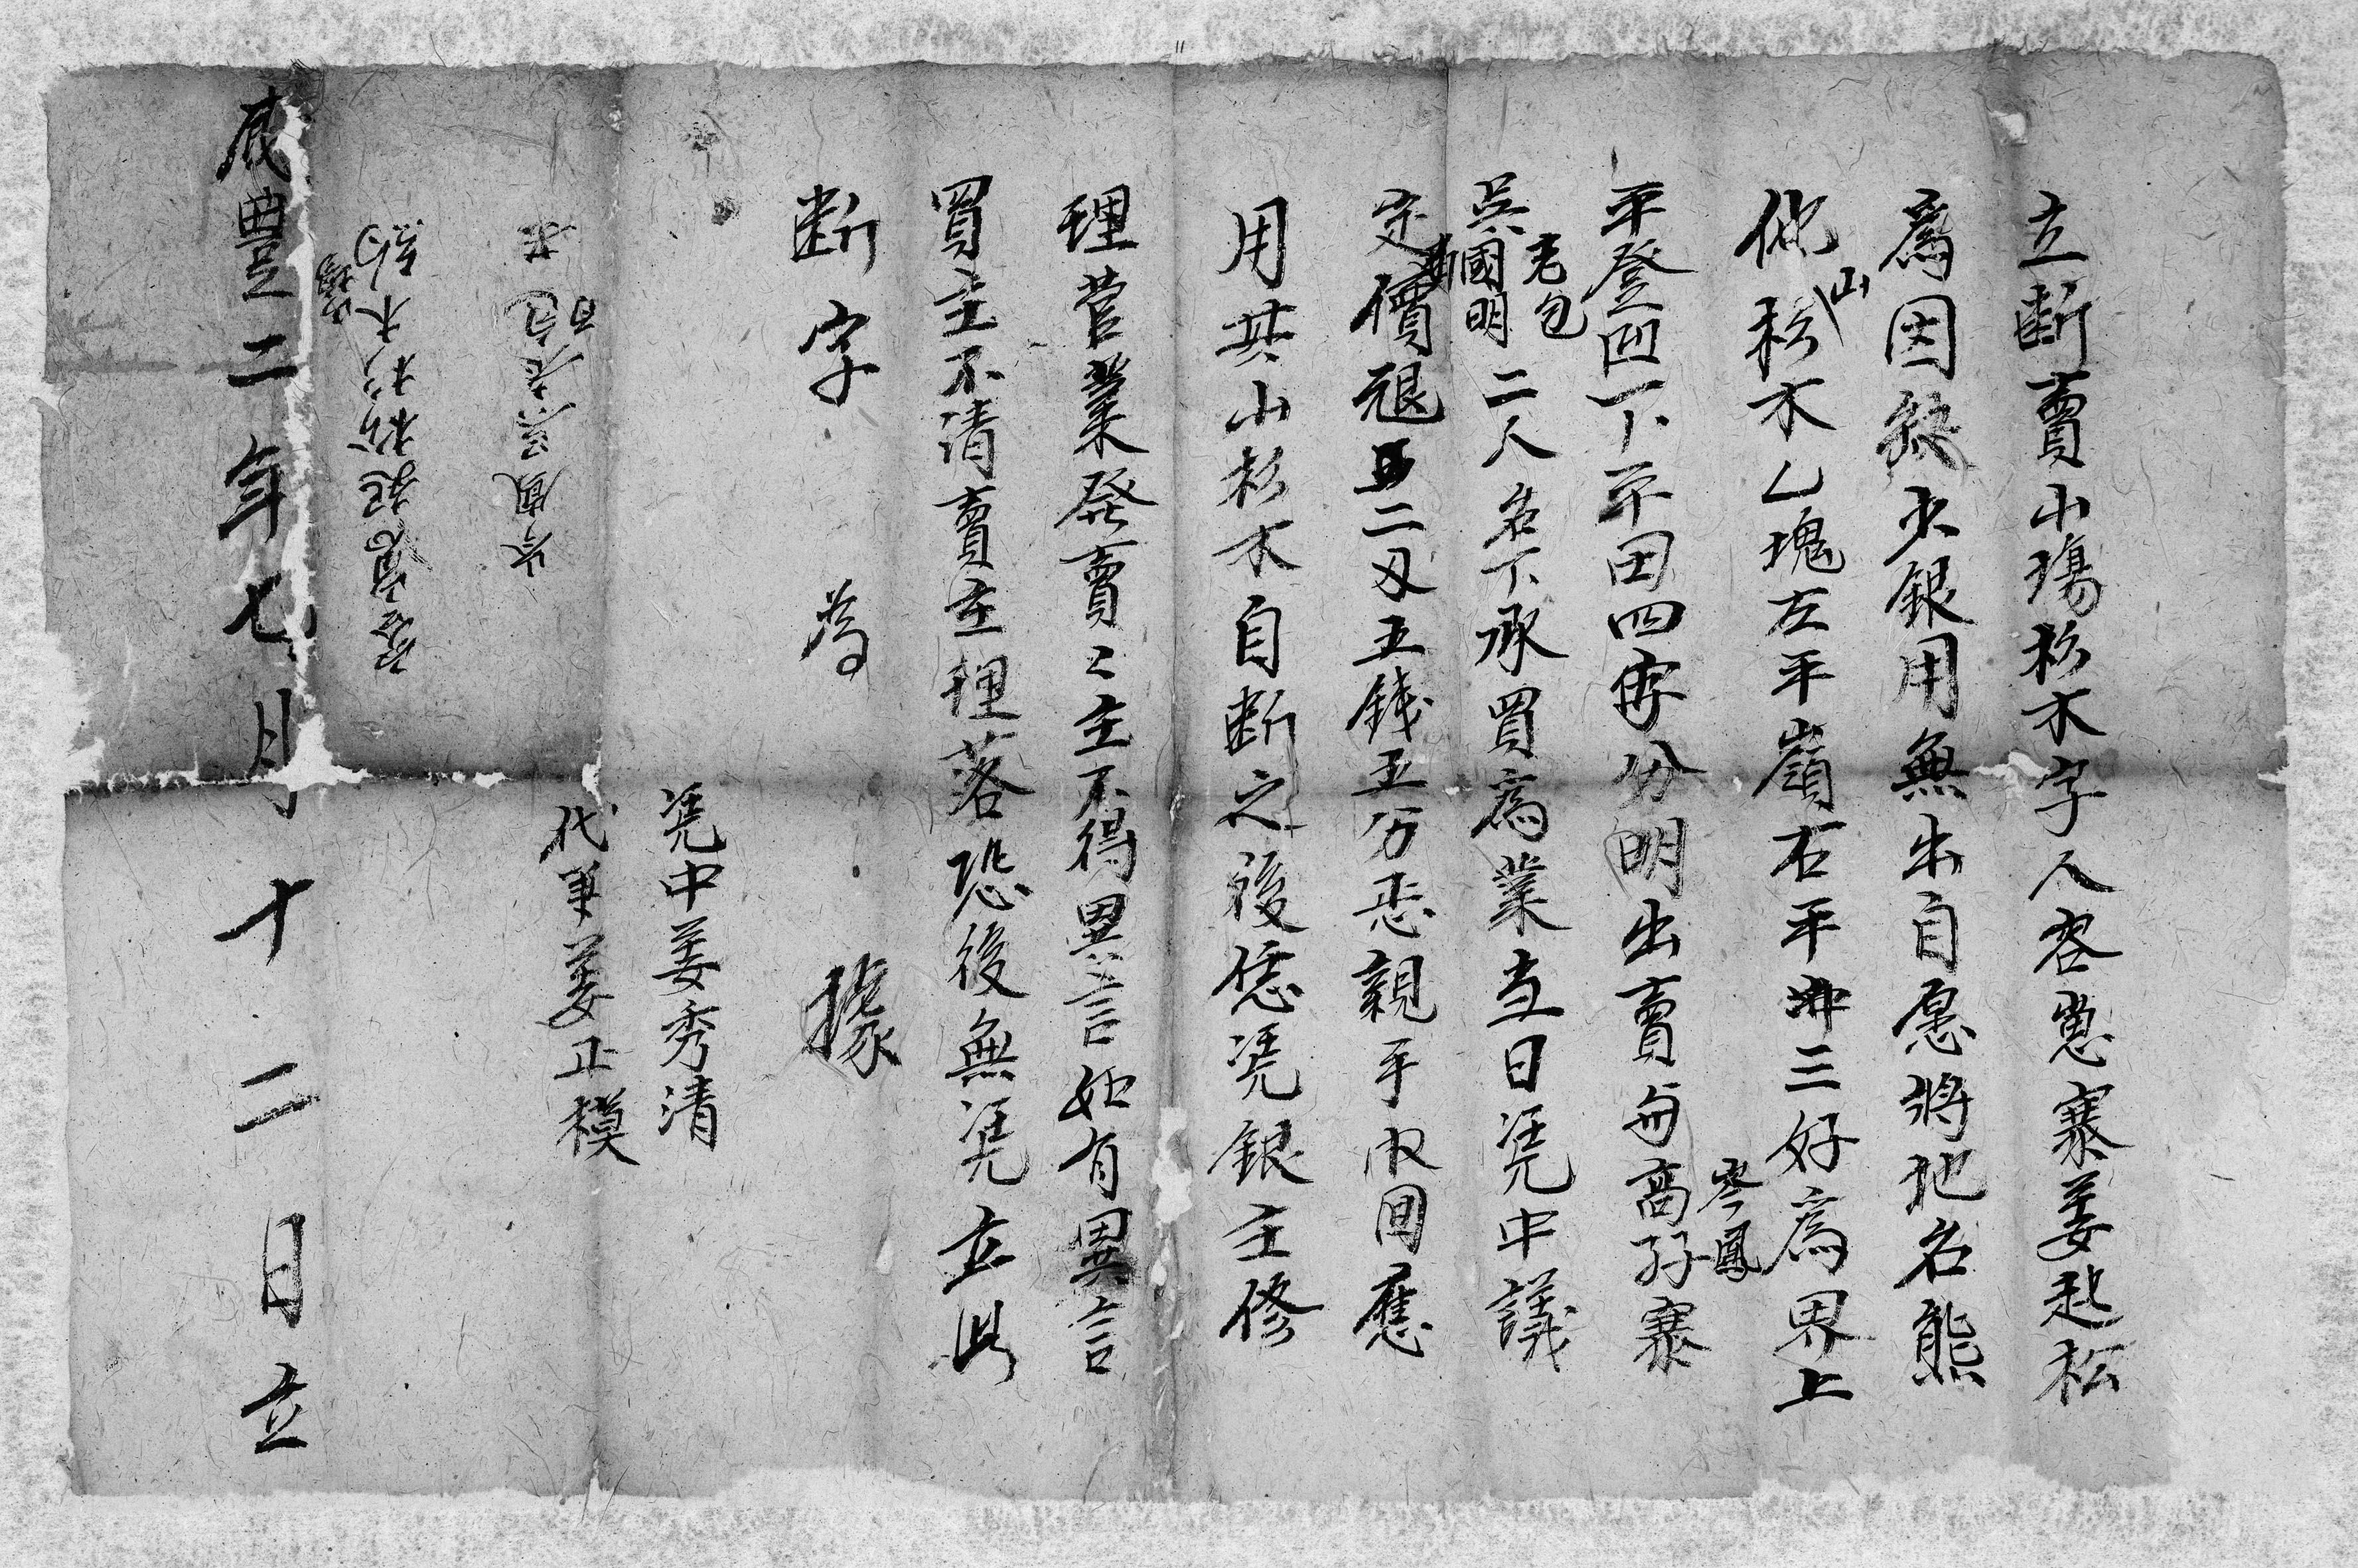 立斷賣山塲杉木字人容嵬寨姜起松
為因缺少銀用無出自愿將地名熊
似山杉木乙塊左平嶺右平冲三好為界上
平登凹下平田四字分明出賣與高孖寨岑鳳
吳國明老包二人名下承買為業當日凭中議
定斷價銀二両五錢五分悉親手収回應
用其山杉木自断之後憑凭銀主修
理管業發賣賣主不得異言如有異言
買主不清賣主理落恐後無凭立此
断字為據
凭中姜秀清
代筆姜正模
岑鳳 吳老包
容嵬起松杉木山塲約
咸豐二年七月十二日立